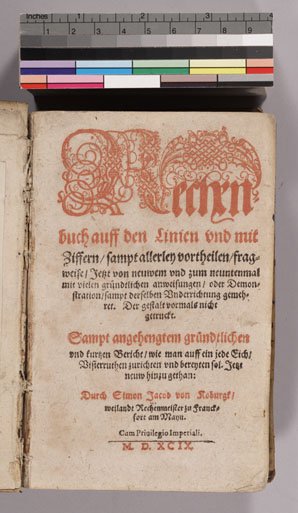 Inches 1 2 3
Rechen-
buch auff den Linien vnd mit
Ziffern / sampt allerley vortheilen / frag-
weise / Jetzt von neuwem vnd zum neuntenmal
mit vielen gründtlichen anweisungen / oder Demon-
stration / sampt derselben Vnderrichtung gemeh-
ret. Der gestalt vormals nicht
getruckt.
Sampt angehengtem gründtlichen
vnd kurtzen Bericht / wie man auff ein jede Eich /
Visierruthen zurichten vnd bereyten sol. Jetzt
neuw hinzu gethan:
Durch Simon Jacob von Koburgk /
weilandt Rechenmeister zu Franck-
fort am Mayn.
Cum Privilegio Imperiali.
M. D. XCIX.